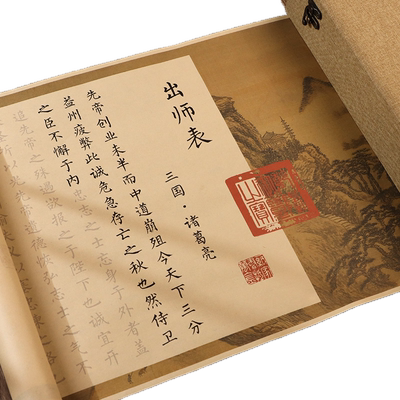 出师表
三国·诸葛亮
先帝创业未半而中道崩殂今天下三分
益州疲弊此诚危急存亡之秋也然侍卫
之臣不懈于内忠志之士忘身于外者盖
追先帝之殊遇欲报之于陛下也诚宜开
遗德恢弘志士之气不